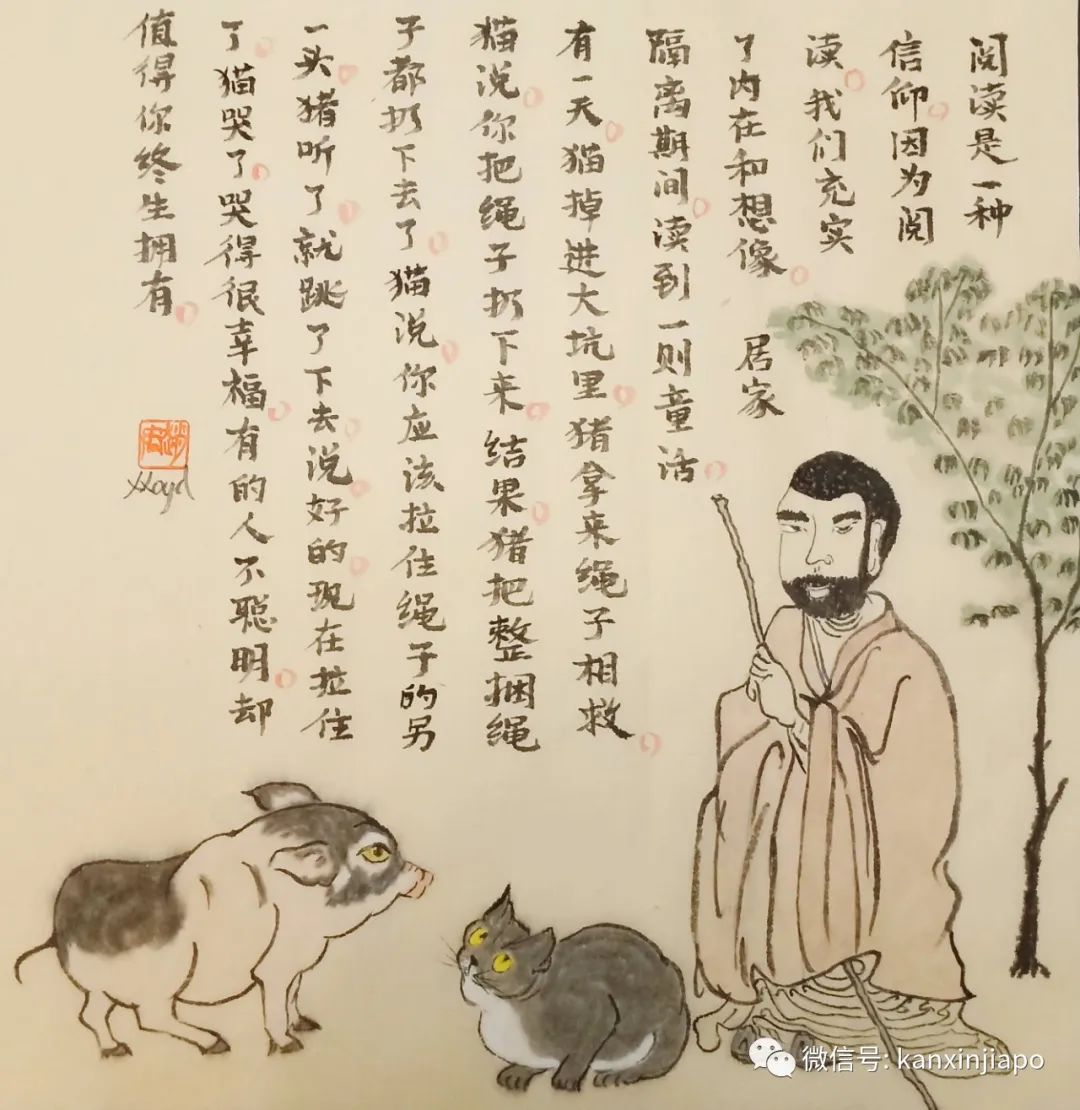 阅读是一种
信仰。因为阅
读。我们充实
了内在和想像。居家
隔离期间。读到一则童话。
有一天。猫掉进大坑里。猪拿来绳子相救。
猫说。你把绳子扔下来。结果。猪把整捆绳
子都扔下去了。猫说。你应该拉住绳子的另
一头。猪听了。就跳了下去。说。好的。现在拉住
了。猫哭了。哭得很幸福。有的人不聪明。却
值得你终生拥有。
微信号: kanxinjiapo